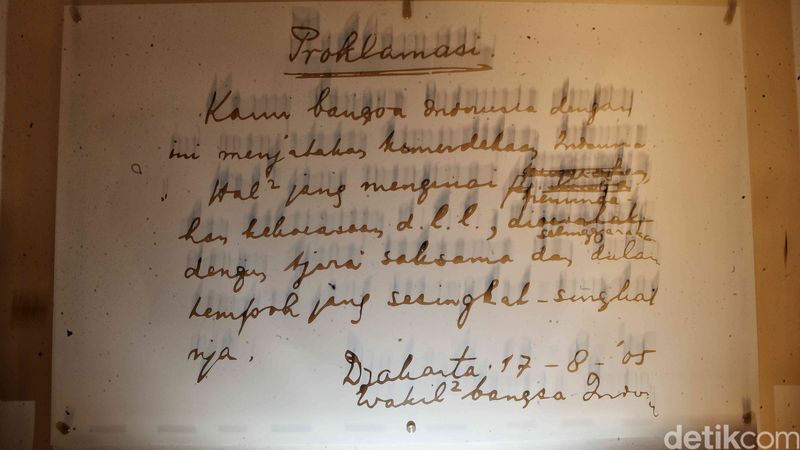 Proklamasi.
Kami bangsa Indonesia dengan
ini menjatakan kemerdekaan Indonesia
Hal² jang mengenai
peminda-
han kekoeasaan d.l.l., diusahak
selenggarakan
dengan tjara saksama dan dalam
tempoh jang sesingkat-singkat
nja.
Djakarta 17 - 8 - '05
Wakil² bangsa Indon
detikcom